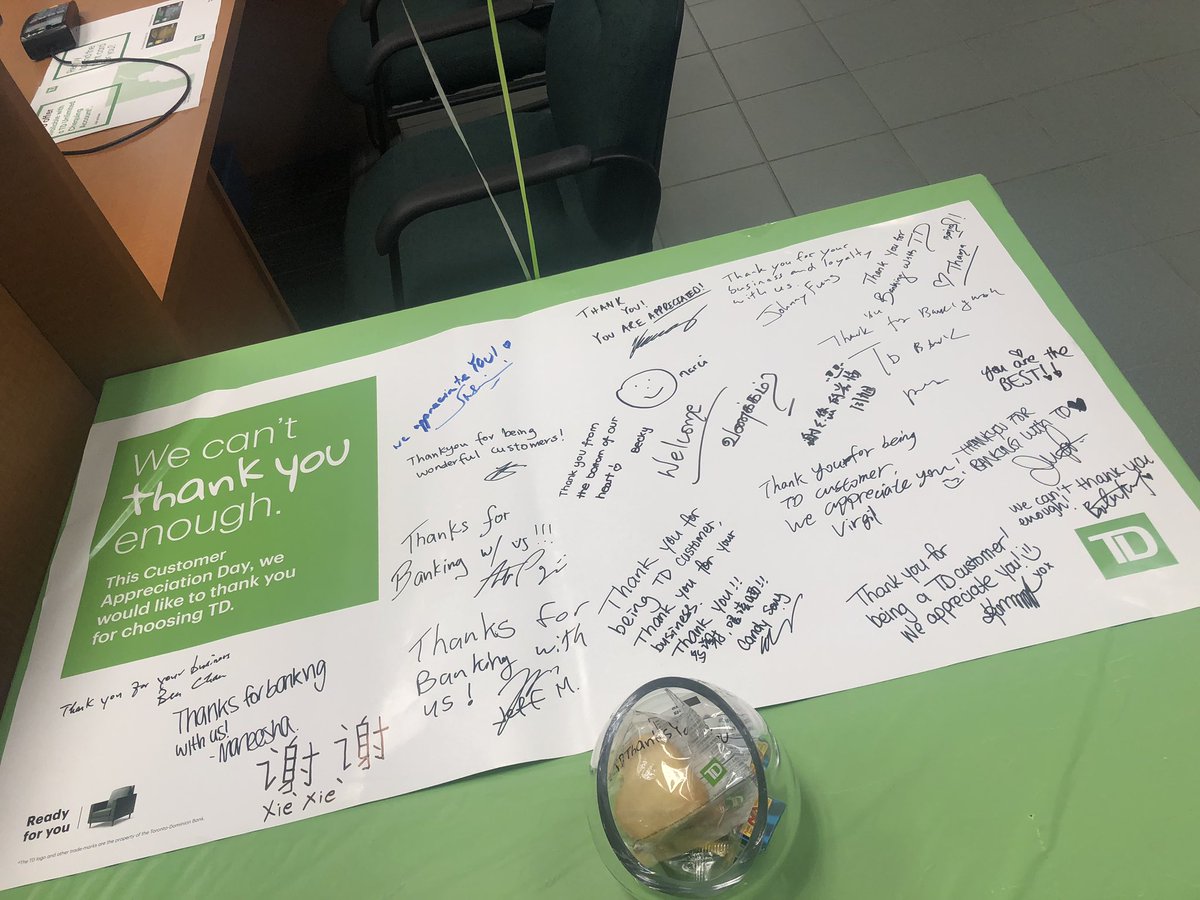 We can't
thank you
enough.
This Customer
Appreciation Day, we
would like to thank you
for choosing TD.
Thank you for your business
Ben Chan
Thanks for banking
with us!
- Maneesha.
谢谢
Xiè Xiè
Ready
for you
*The TD logo and other trade-marks are the property of The Toronto-Dominion Bank.
we appreciate YOU!
Thankyou for being
wonderful customers!
Thanks for
Banking w/ us!!!
Thanks for
Banking with
us!
Jeff M.
THANK
YOU!
YOU ARE APPRECIATED!
merci
Thank you from
the bottom of our
heart
Becky
Welcome
Thank you for
being TD customer,
Thank you for your
business.
Thank you!!
Candy Song
Thank you for your
business and loyalty
with us.
Johnny Fung
Thank you for
Banking with TD
Thank for Banking with
TD Bank
you are the
BEST!!
Thank you for being
TD customer.
We appreciate you!
Virgil
THANK YOU FOR
BANKING WITH TD
we can't thank you
enough!
Thank you for
being a TD customer!
We appreciate you!
xox
TD
Thanks
TD